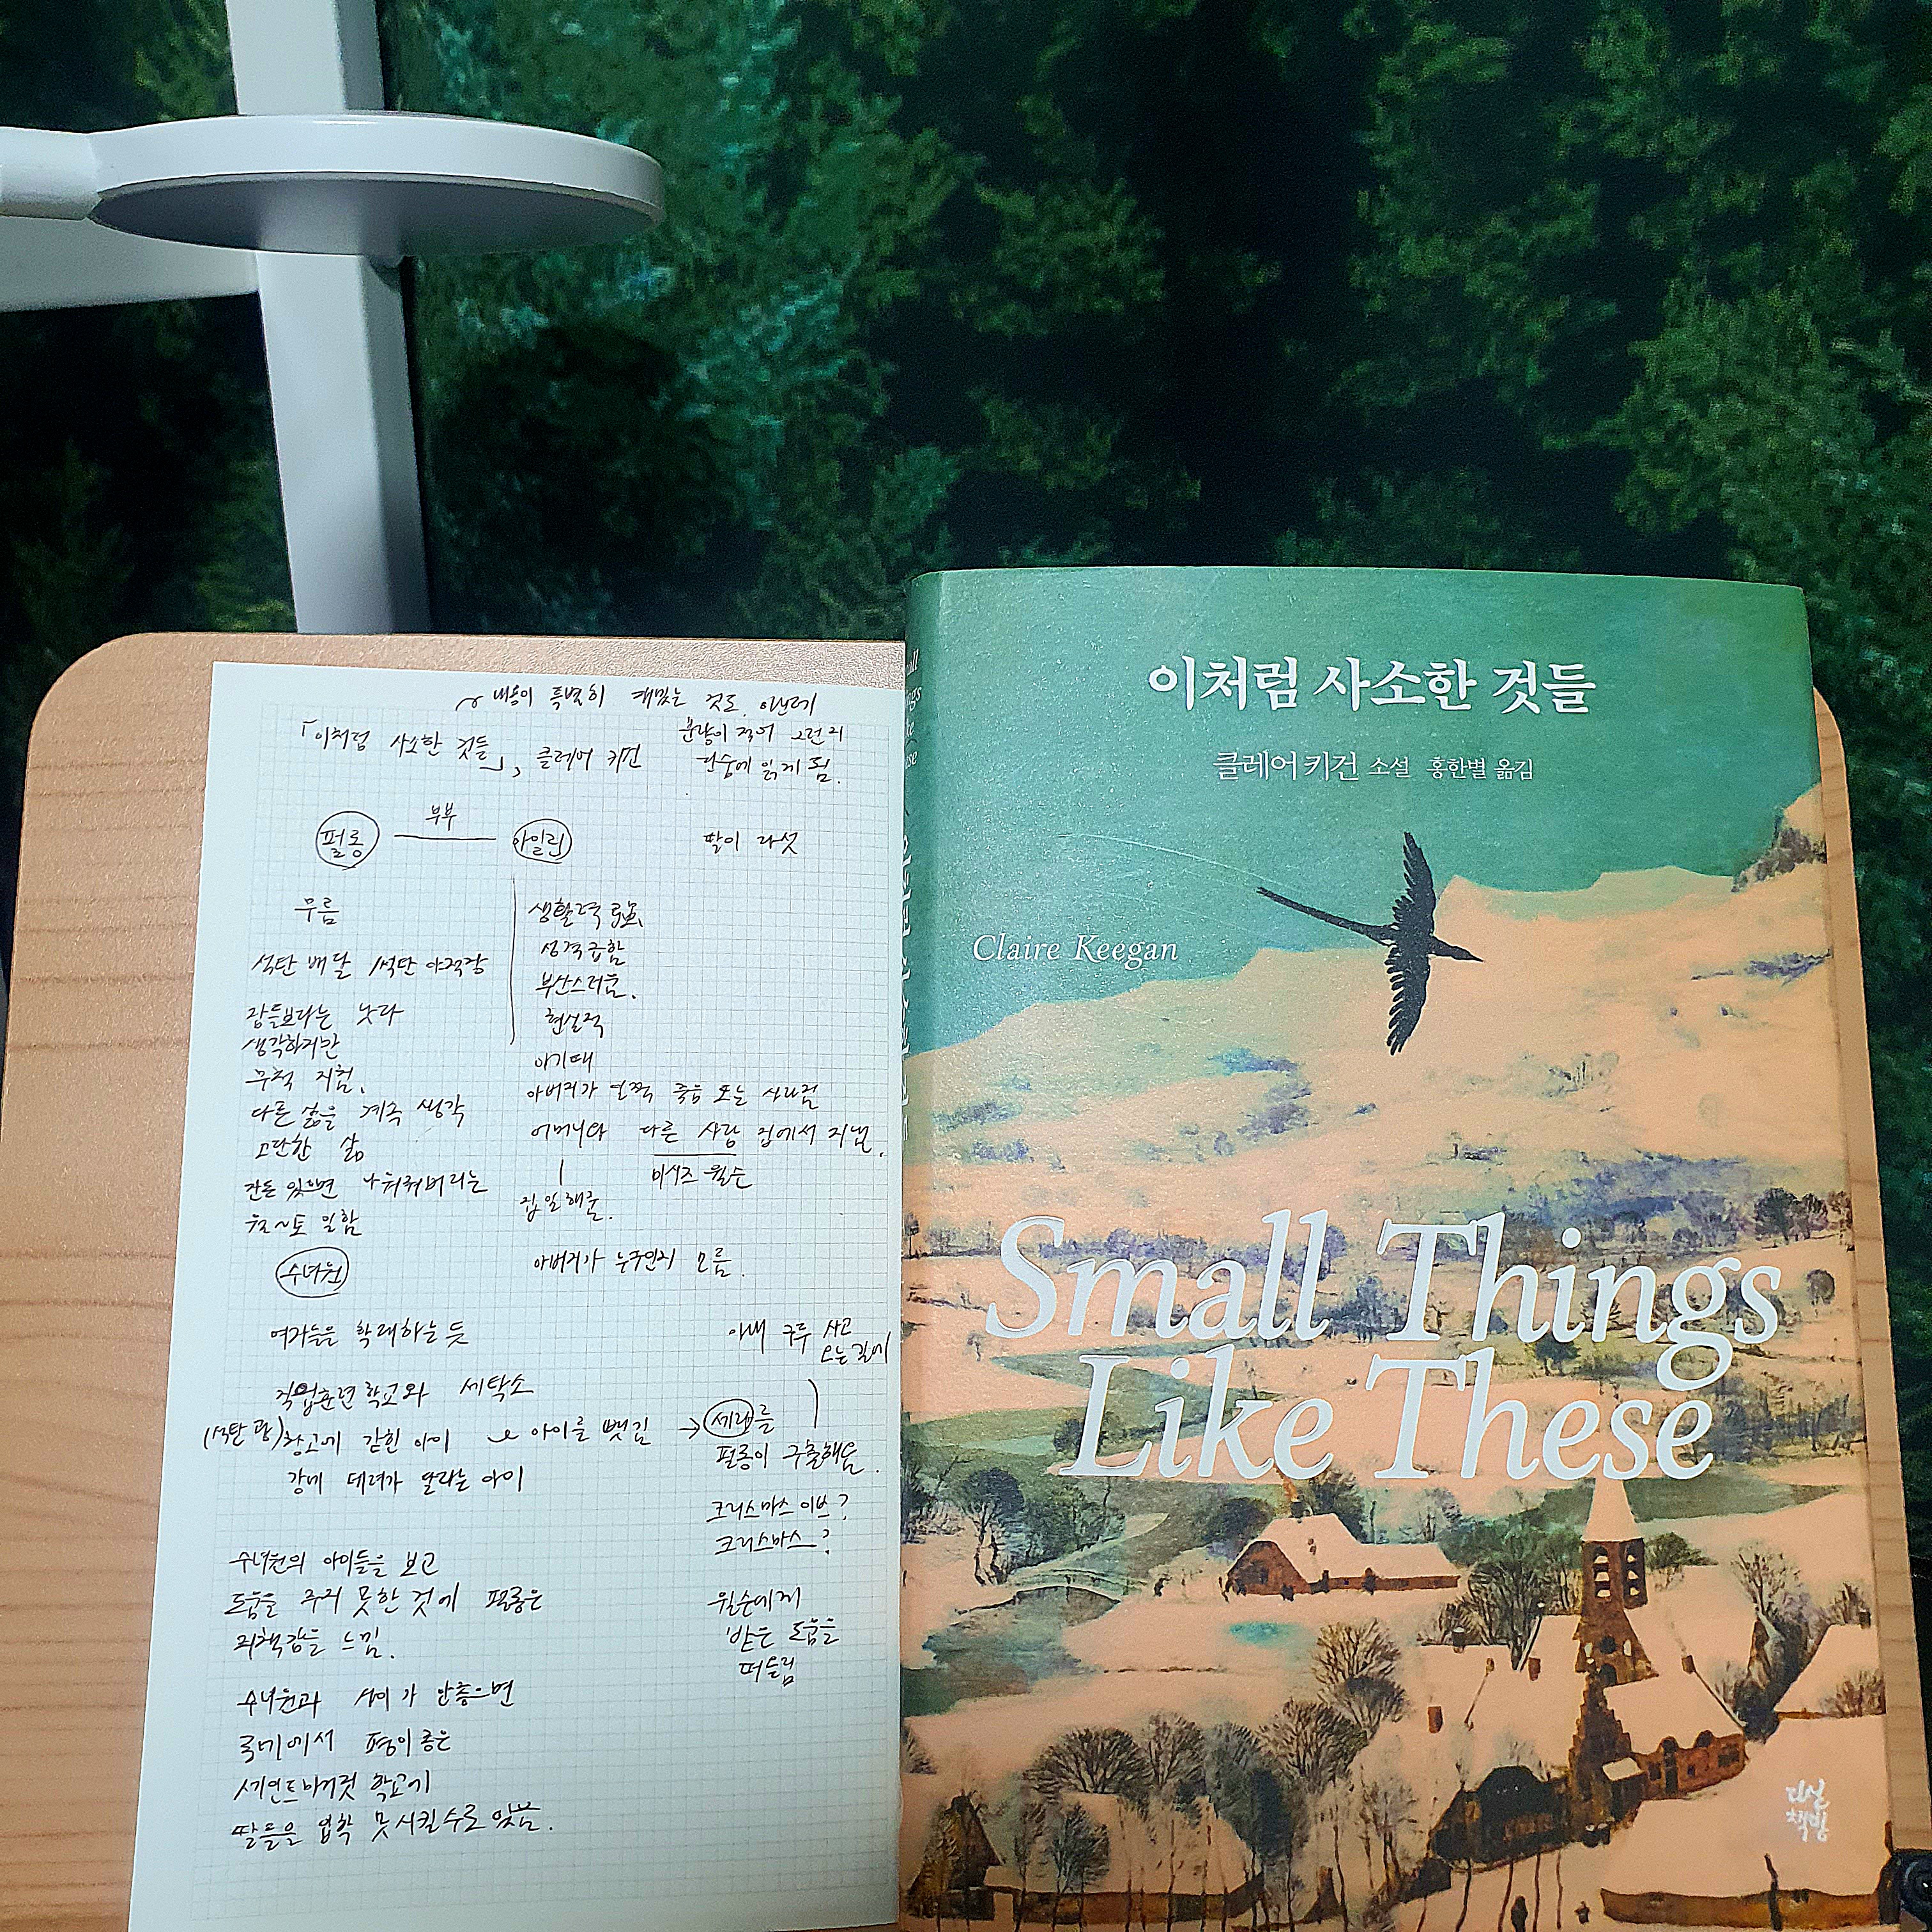 내용이 특별히 재밌는 것도 아닌데
분량이 적어 그런지
한숨에 읽게 됨.
「이처럼 사소한 것들」, 클레어 키건
펄롱
부부
아일린
딸이 다섯
무름
석탄 배달 / 석탄 야적장
남들보다는 낫다
생각하지만
무척 지침.
다른 삶을 계속 생각
고단한 삶
잔돈 있으면 나눠줘버리는
월~토 일함
생활력 强
성격급함
부산스러움.
현실적
아기때
아버지가 일찍 죽음 또는 사라짐
어머니와 다른 사람 집에서 지냄.
미시즈 윌슨
집일해줌.
아버지가 누구인지 모름.
수녀원
여자들을 학대하는 듯
직업훈련학교와 세탁소
(석탄 광) 창고에 갇힌 아이
아이를 뺏김
강에 데려가 달라는 아이
수녀원의 아이들을 보고
도움을 주지 못한 것에 펄롱은
죄책감을 느낌.
수녀원과 사이가 안좋으면
국내에서 평이 좋은
세인트마거릿 학교에
딸들을 입학 못시킬수도 있음.
아내 구두 사고
오는길에
→ 세라를
펄롱이 구출해옴.
크리스마스 이브?
크리스마스?
윌슨에게
받은 도움을
떠올림
이처럼 사소한 것들
클레어 키건 소설 홍한별 옮김
Claire Keegan
Small Things
Like These
다산
책방